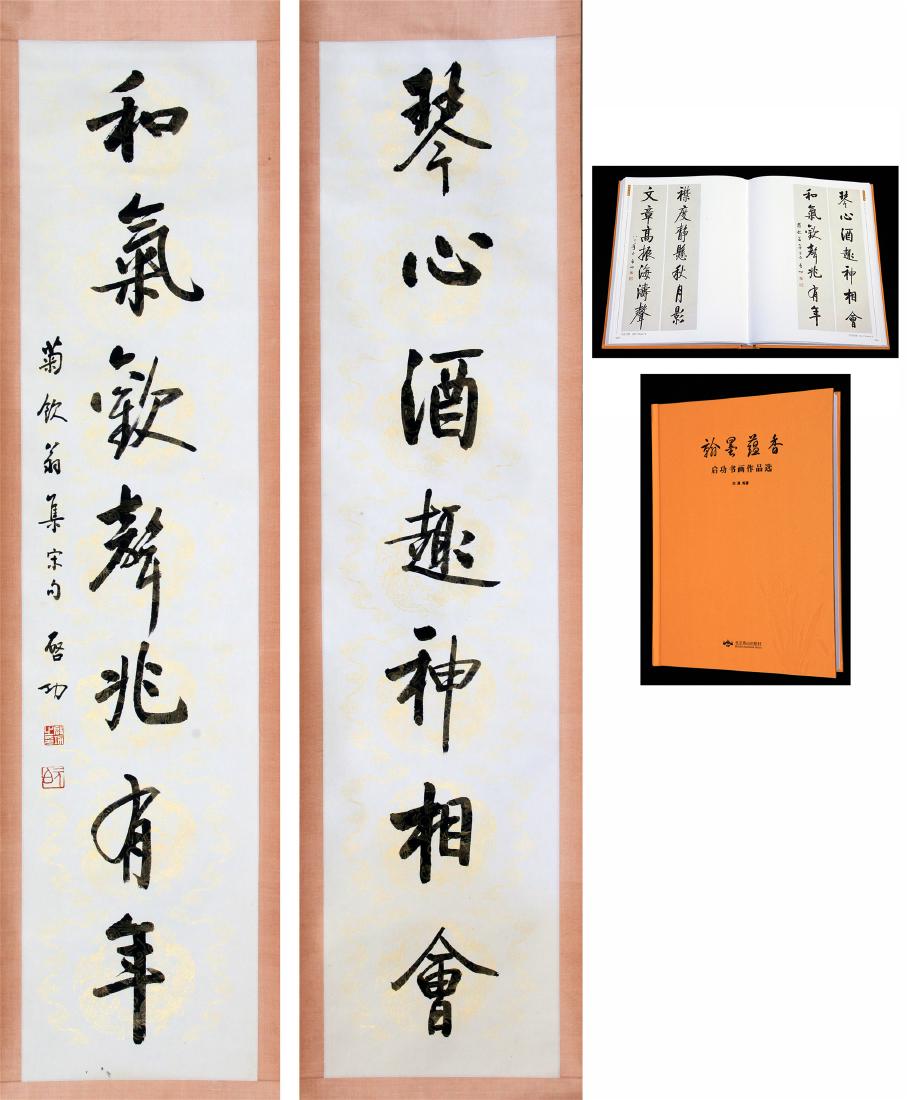 琴心酒趣神相會
和氣歡聲兆有年
菊飲翁集宋句 啓功
琴心酒趣神相會
和氣歡聲兆有年
襟度静懸秋月影
文章高振海濤聲
翰墨蕴香
启功书画作品选
北京燕山出版社